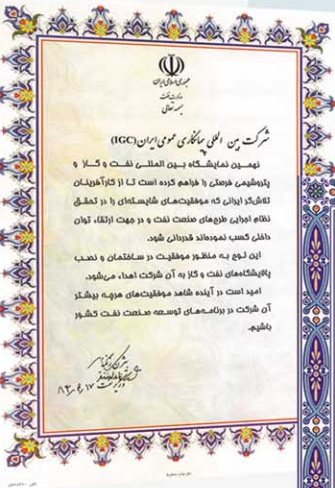 جمهوری اسلامی ایران
وزارت نفت
بسمه تعالی
شرکت بین المللی پیمانکاری عمومی ایران (IGC)
نهمین نمایشگاه بین المللی نفت و گاز و
پتروشیمی فرصتی را فراهم کرده است تا از کارآفرینان
تلاش‌گر ایرانی که موفقیت‌های شایسته‌ای را در تحقق
نظام اجرایی طرح‌های صنعت نفت و در جهت ارتقاء توان
داخلی کسب نموده‌اند قدردانی شود.
این لوح به منظور موفقیت در ساختمان و نصب
پالایشگاه‌های نفت و گاز به آن شرکت اهداء می‌شود.
امید است در آینده شاهد موفقیت‌های هرچه بیشتر
آن شرکت در برنامه‌های توسعه صنعت نفت کشور
باشیم.
وزیر نفت